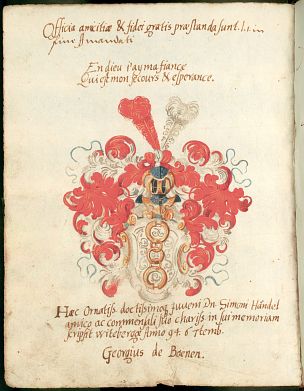 Officia amicitiæ & fidei gratis præstanda sunt. l.
fine ff mandati
En dieu j'ay ma fiance
Qui est mon secours & esperance.
Hæc Ornatiss. doctissimoq juveni Dn. Simoni Händel
amico ac commensali suo chariss. in sui memoriam
scripsit Witebergæ Anno 94. 6 7temb.
Georgius de Boenen.